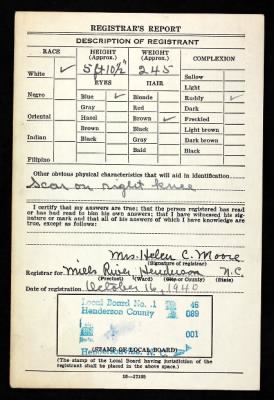 REGISTRAR'S REPORT
DESCRIPTION OF REGISTRANT
RACE HEIGHT (Approx.) WEIGHT (Approx.) COMPLEXION
White ✓ 5 ft 10½" 245 Sallow
EYES HAIR Light
Negro Blue ✓ Blonde Ruddy ✓
Gray Red Dark
Oriental Hazel Brown ✓ Freckled
Brown Black Light brown
Indian Black Gray Dark brown
Bald Black
Filipino
Other obvious physical characteristics that will aid in identification
Scar on right knee
I certify that my answers are true; that the person registered has read or has had read to him his own answers; that I have witnessed his signature or mark and that all of his answers of which I have knowledge are true, except as follows:
Mrs. Helen C. Moore
(Signature of registrar)
Registrar for Mills River Henderson N.C.
(Precinct) (Ward) (City or County) (State)
Date of registration October 16, 1940
Local Board No. 1 46
Henderson County 089
001
Hendersonville, N. C.
(STAMP OF LOCAL BOARD)
(The stamp of the Local Board having jurisdiction of the registrant shall be placed in the above space.)